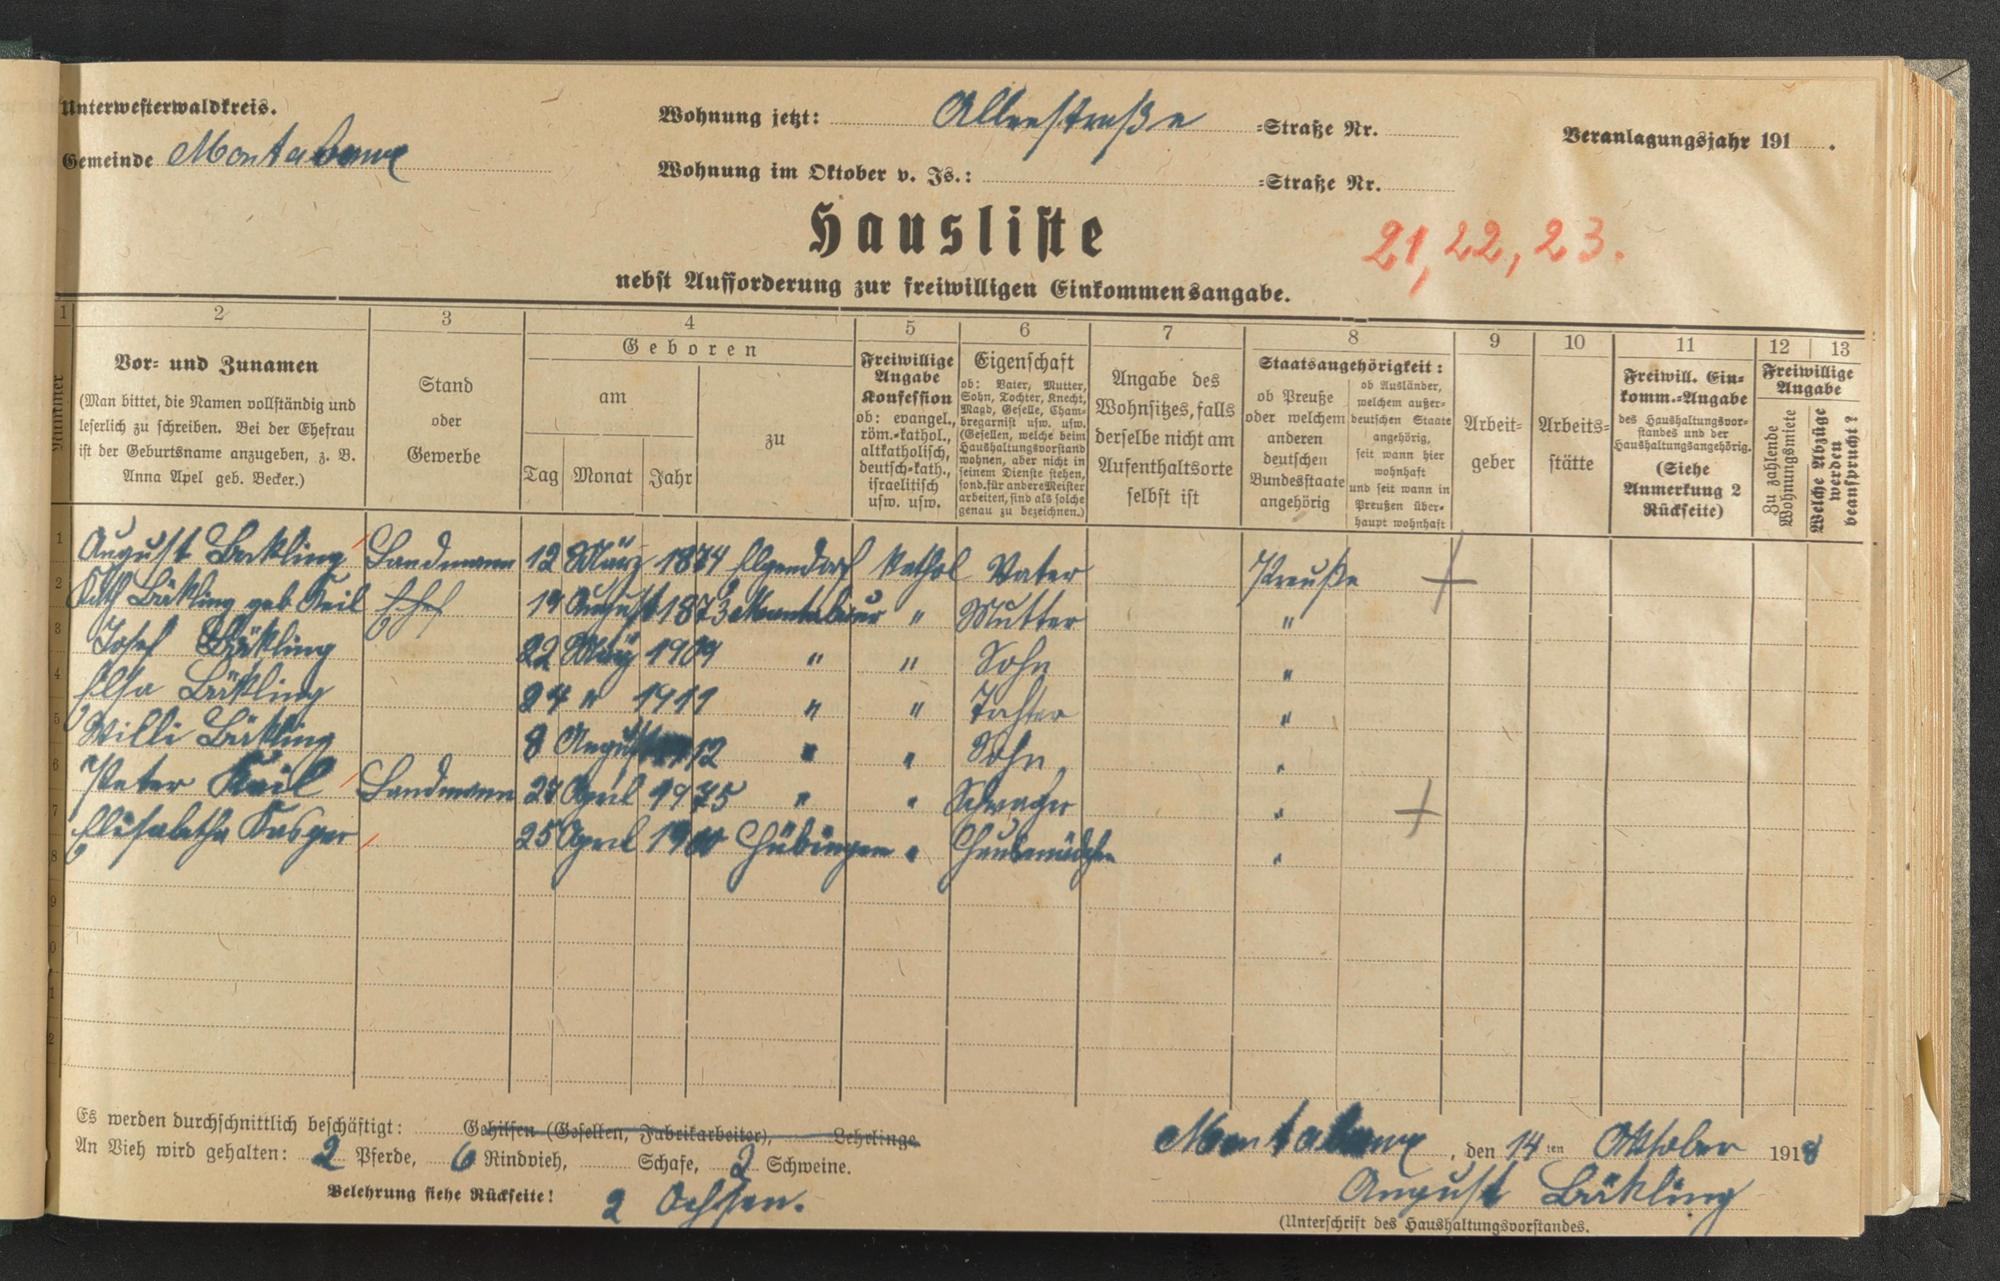 Unterwesterwaldkreis.
Gemeinde Montabaur
Wohnung jetzt: Alleestraße =Straße Nr.
Wohnung im Oktober v. Js.: =Straße Nr.
Veranlagungsjahr 191 .
Hausliste
21, 22, 23.
nebst Aufforderung zur freiwilligen Einkommensangabe.
1 2 3 4 5 6 7 8 9 10 11 12 13
Nummer
Vor= und Zunamen
(Man bittet, die Namen vollständig und
leserlich zu schreiben. Bei der Ehefrau
ist der Geburtsname anzugeben, z. B.
Anna Apel geb. Becker.)
Stand
oder
Gewerbe
Geboren
am
Tag Monat Jahr
zu
Freiwillige
Angabe
Konfession
ob: evangel.,
röm.=kathol.,
altkatholisch,
deutsch=kath.,
israelitisch
usw. usw.
Eigenschaft
ob: Vater, Mutter,
Sohn, Tochter, Knecht,
Magd, Geselle, Cham=
bregarnist usw. usw.
(Gesellen, welche beim
Haushaltungsvorstand
wohnen, aber nicht in
seinem Dienste stehen,
sond. für andere Meister
arbeiten, sind als solche
genau zu bezeichnen.)
Angabe des
Wohnsitzes, falls
derselbe nicht am
Aufenthaltsorte
selbst ist
Staatsangehörigkeit:
ob Preuße
oder welchem
anderen
deutschen
Bundesstaate
angehörig
ob Ausländer,
welchem außer=
deutschen Staate
angehörig,
seit wann hier
wohnhaft
und seit wann in
Preußen über=
haupt wohnhaft
Arbeit=
geber
Arbeits=
stätte
Freiwill. Ein=
komm.=Angabe
des Haushaltungsvor=
standes und der
Haushaltungsangehörig.
(Siehe
Anmerkung 2
Rückseite)
Freiwillige
Angabe
Zu zahlende
Wohnungsmiete
Welche Abzüge
werden
beansprucht?
1 August Bäkling Landmann 12 März 1874 Elgendorf Kathol Vater Preuße
2 Kath Bäkling geb Keil Ehef 19 August 1873 Montabaur " Mutter "
3 Josef Bäkling 22 März 1909 " " Sohn "
4 Elsa Bäkling 24 " 1911 " " Tochter "
5 Willi Bäkling 8 August 12 " " Sohn "
6 Peter Keil Landmann 27 April 1975 " " Schwager "
7 Elisabetha Kasper 25 April 1900 Hübingen " Hausmädchen "
8
9
0
1
2
Es werden durchschnittlich beschäftigt: Gehilfen (Gesellen, Fabrikarbeiter), Lehrlinge
An Vieh wird gehalten: 2 Pferde, 6 Rindvieh, Schafe, 2 Schweine.
Belehrung siehe Rückseite! 2 Ochsen.
Montabaur, den 14 ten Oktober 1918
August Bäkling
(Unterschrift des Haushaltungsvorstandes.